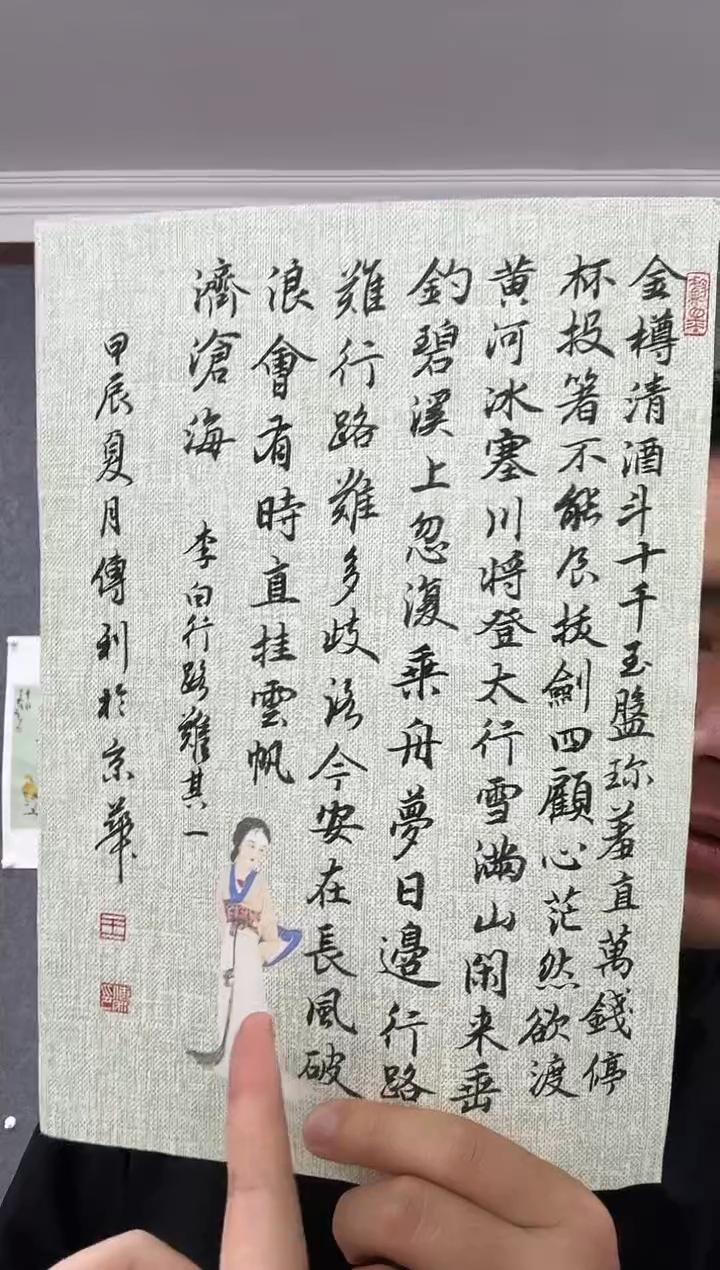 金樽清酒斗十千玉盤珎羞直萬錢停
杯投箸不能食拔劍四顧心茫然欲渡
黄河冰塞川将登太行雪滿山閑来垂
釣碧溪上忽復乗舟夢日邊行路
難行路難多歧路今安在長風破
浪會有時直挂雲帆
濟滄海
李白行路難其一
甲辰夏月傳利於京華